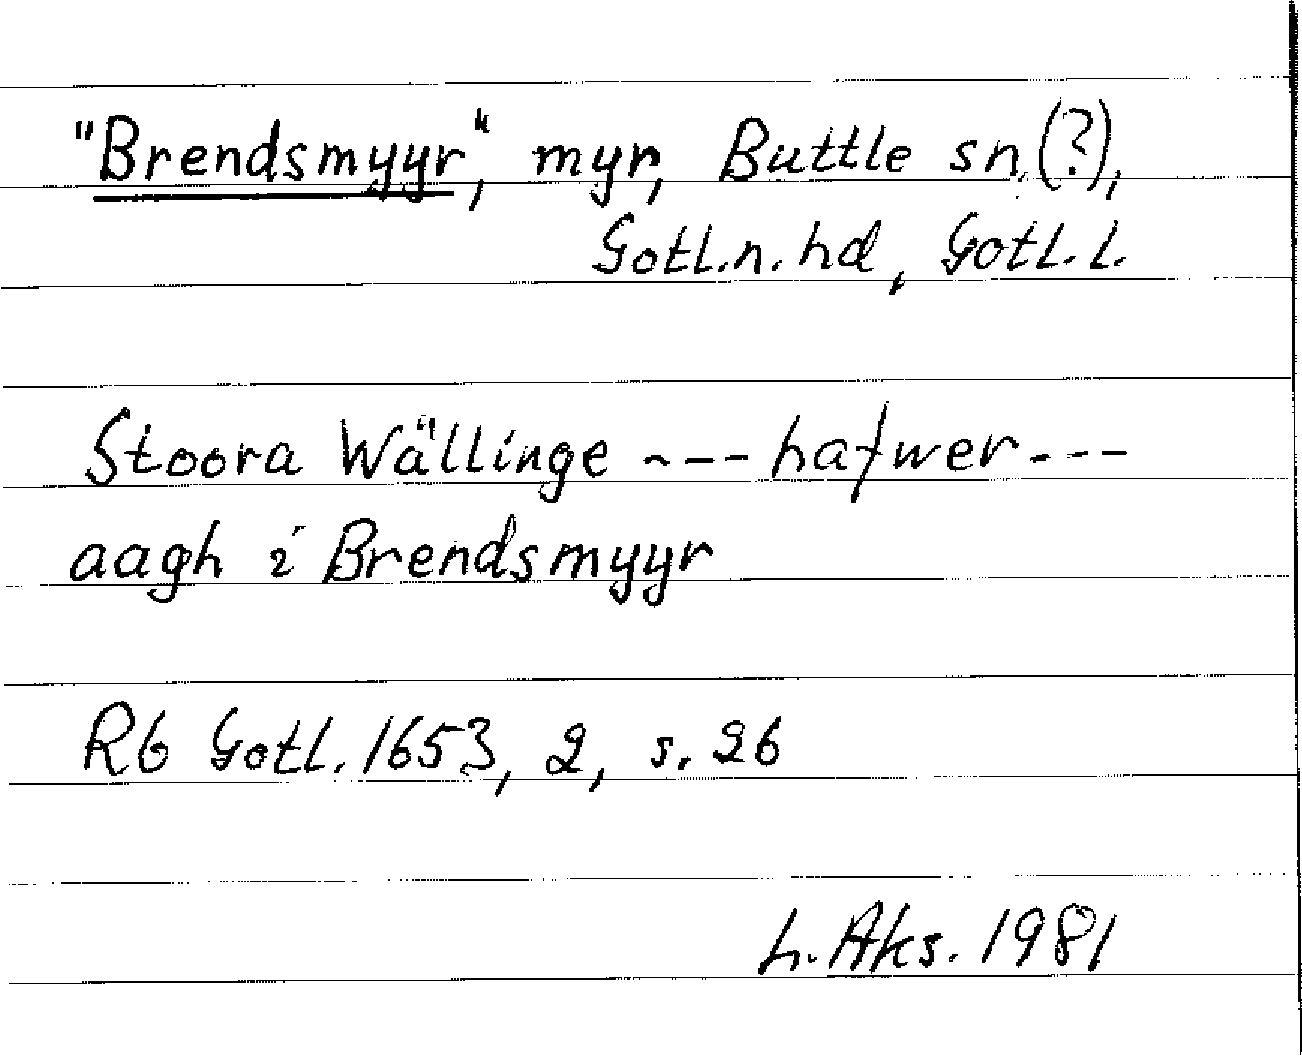 "Brendsmyyr", myr, Buttle sn.(?),
Gotl.n.hd, Gotl.l.
Stoora Wällinge --- hafwer ---
aagh i Brendsmyyr
Rb Gotl. 1653, 2, s. 26
L. Aks. 1981